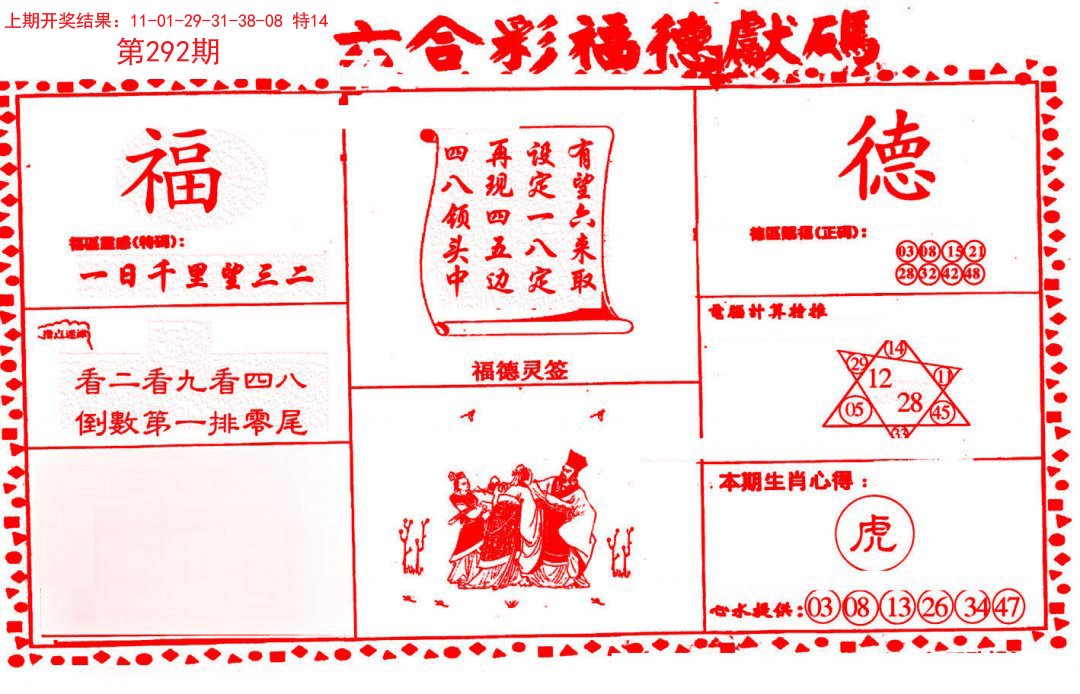 上期开奖结果：11-01-29-31-38-08 特14
第292期
六合彩福德獻碼
福
福區靈感(特碼)：
一日千里望三二
指点迷津
看二看九看四八
倒數第一排零尾
有望六来取
设定一八定
再现四五边
四八领头中
福德灵签
德
德區賜福(正碼)：
03 08 15 21
28 32 42 48
電腦計算特推
14
29
12
11
28
05
45
33
本期生肖心得：
虎
心水提供：03 08 13 26 34 47